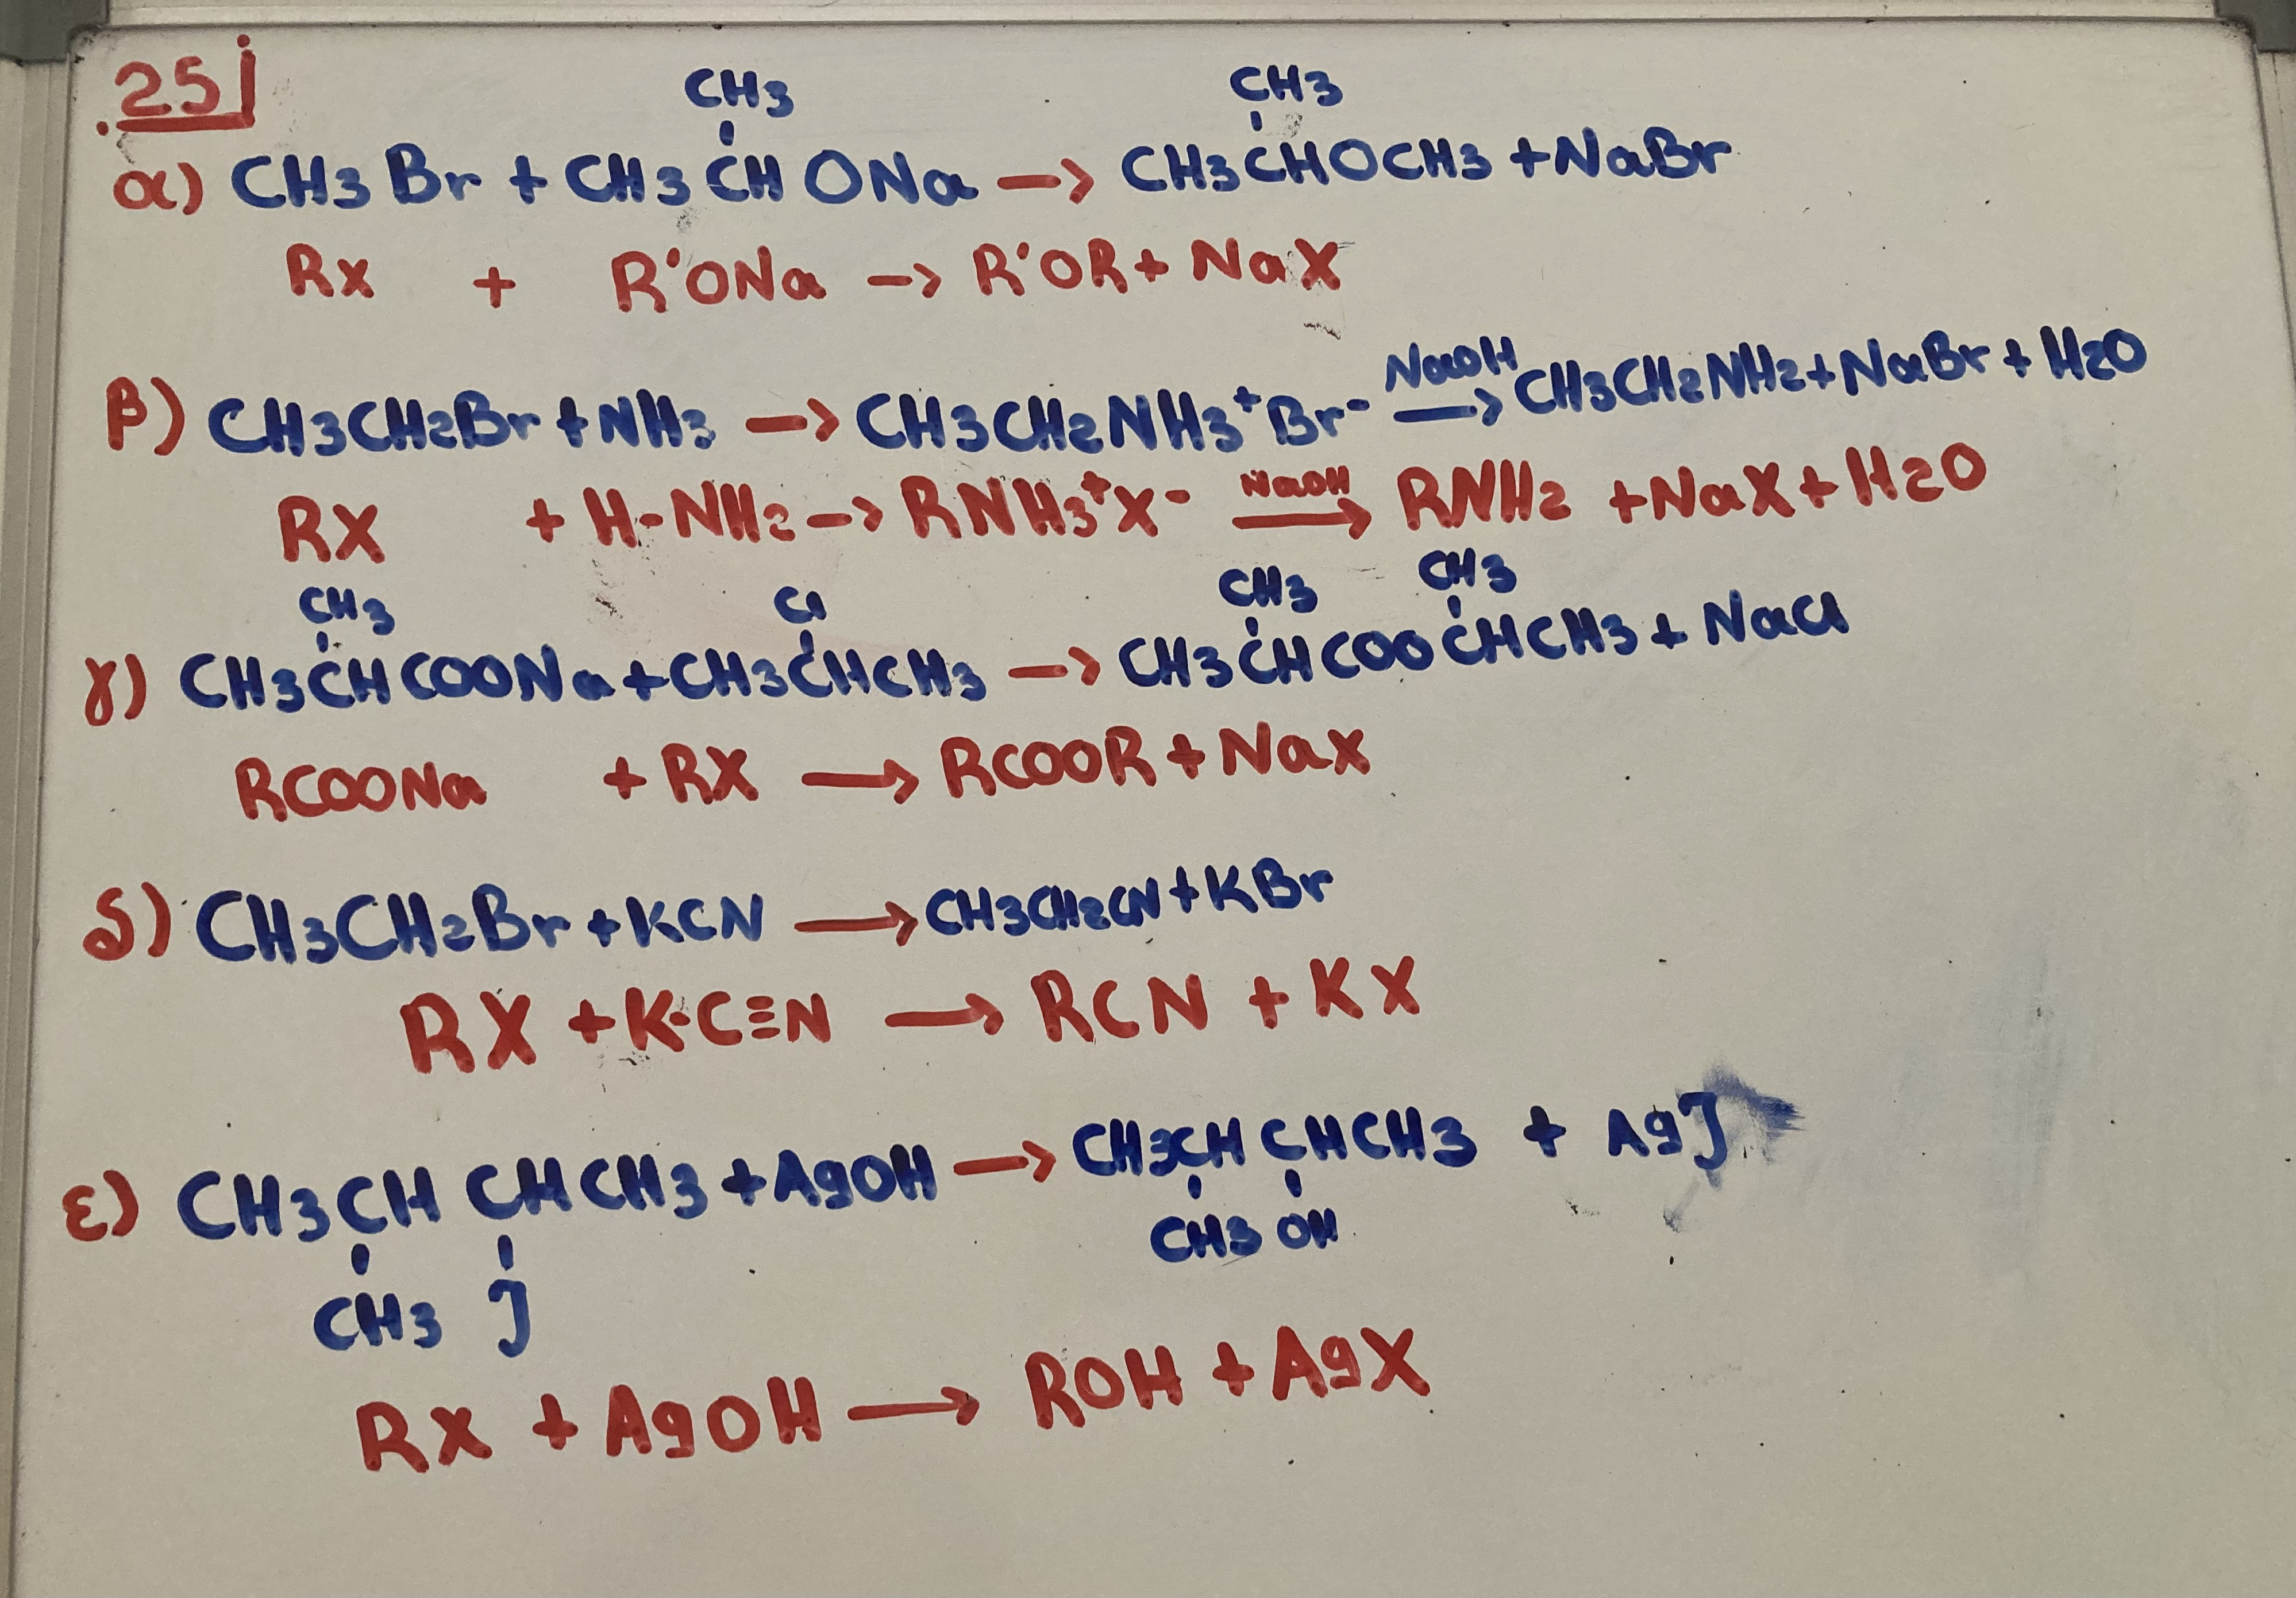 25)
CH3 CH3
α) CH3Br + CH3CHONa → CH3CHOCH3 + NaBr
Rx + R'ONa → R'OR + NaX
β) CH3CH2Br + NH3 → CH3CH2NH3⁺Br⁻ NaOH → CH3CH2NH2 + NaBr + H2O
RX + H-NH2 → RNH3⁺X⁻ NaOH → RNH2 + NaX + H2O
CH3 Cl CH3 CH3
γ) CH3CHCOONa + CH3CHCH3 → CH3CHCOOCHCH3 + NaCl
RCOONa + RX → RCOOR + NaX
δ) CH3CH2Br + KCN → CH3CH2CN + KBr
RX + K-C≡N → RCN + KX
ε) CH3CHCHCH3 + AgOH → CH3CHCHCH3 + AgJ
CH3 OH
CH3 J
Rx + AgOH → ROH + AgX